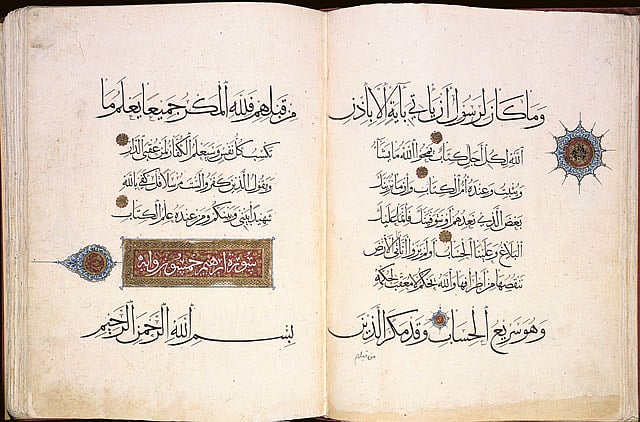 وما كان لرسول ان ياتي باية الا باذن
الله لكل اجل كتاب يمحوا الله ما يشاء
ويثبت وعنده ام الكتاب وان ما نرينك
بعض الذي نعدهم او نتوفينك فانما عليك
البلاغ وعلينا الحساب اولم يروا انا ناتي الارض
ننقصها من اطرافها والله يحكم لا معقب لحكمه
وهو سريع الحساب وقد مكر الذين
من قبلهم
من قبلهم فلله المكر جميعا يعلم ما
تكسب كل نفس وسيعلم الكفار لمن عقبى الدار
ويقول الذين كفروا لست مرسلا قل كفى بالله
شهيدا بيني وبينكم ومن عنده علم الكتاب
سورة ابرهيم خمسون واية
بسم الله الرحمن الرحيم